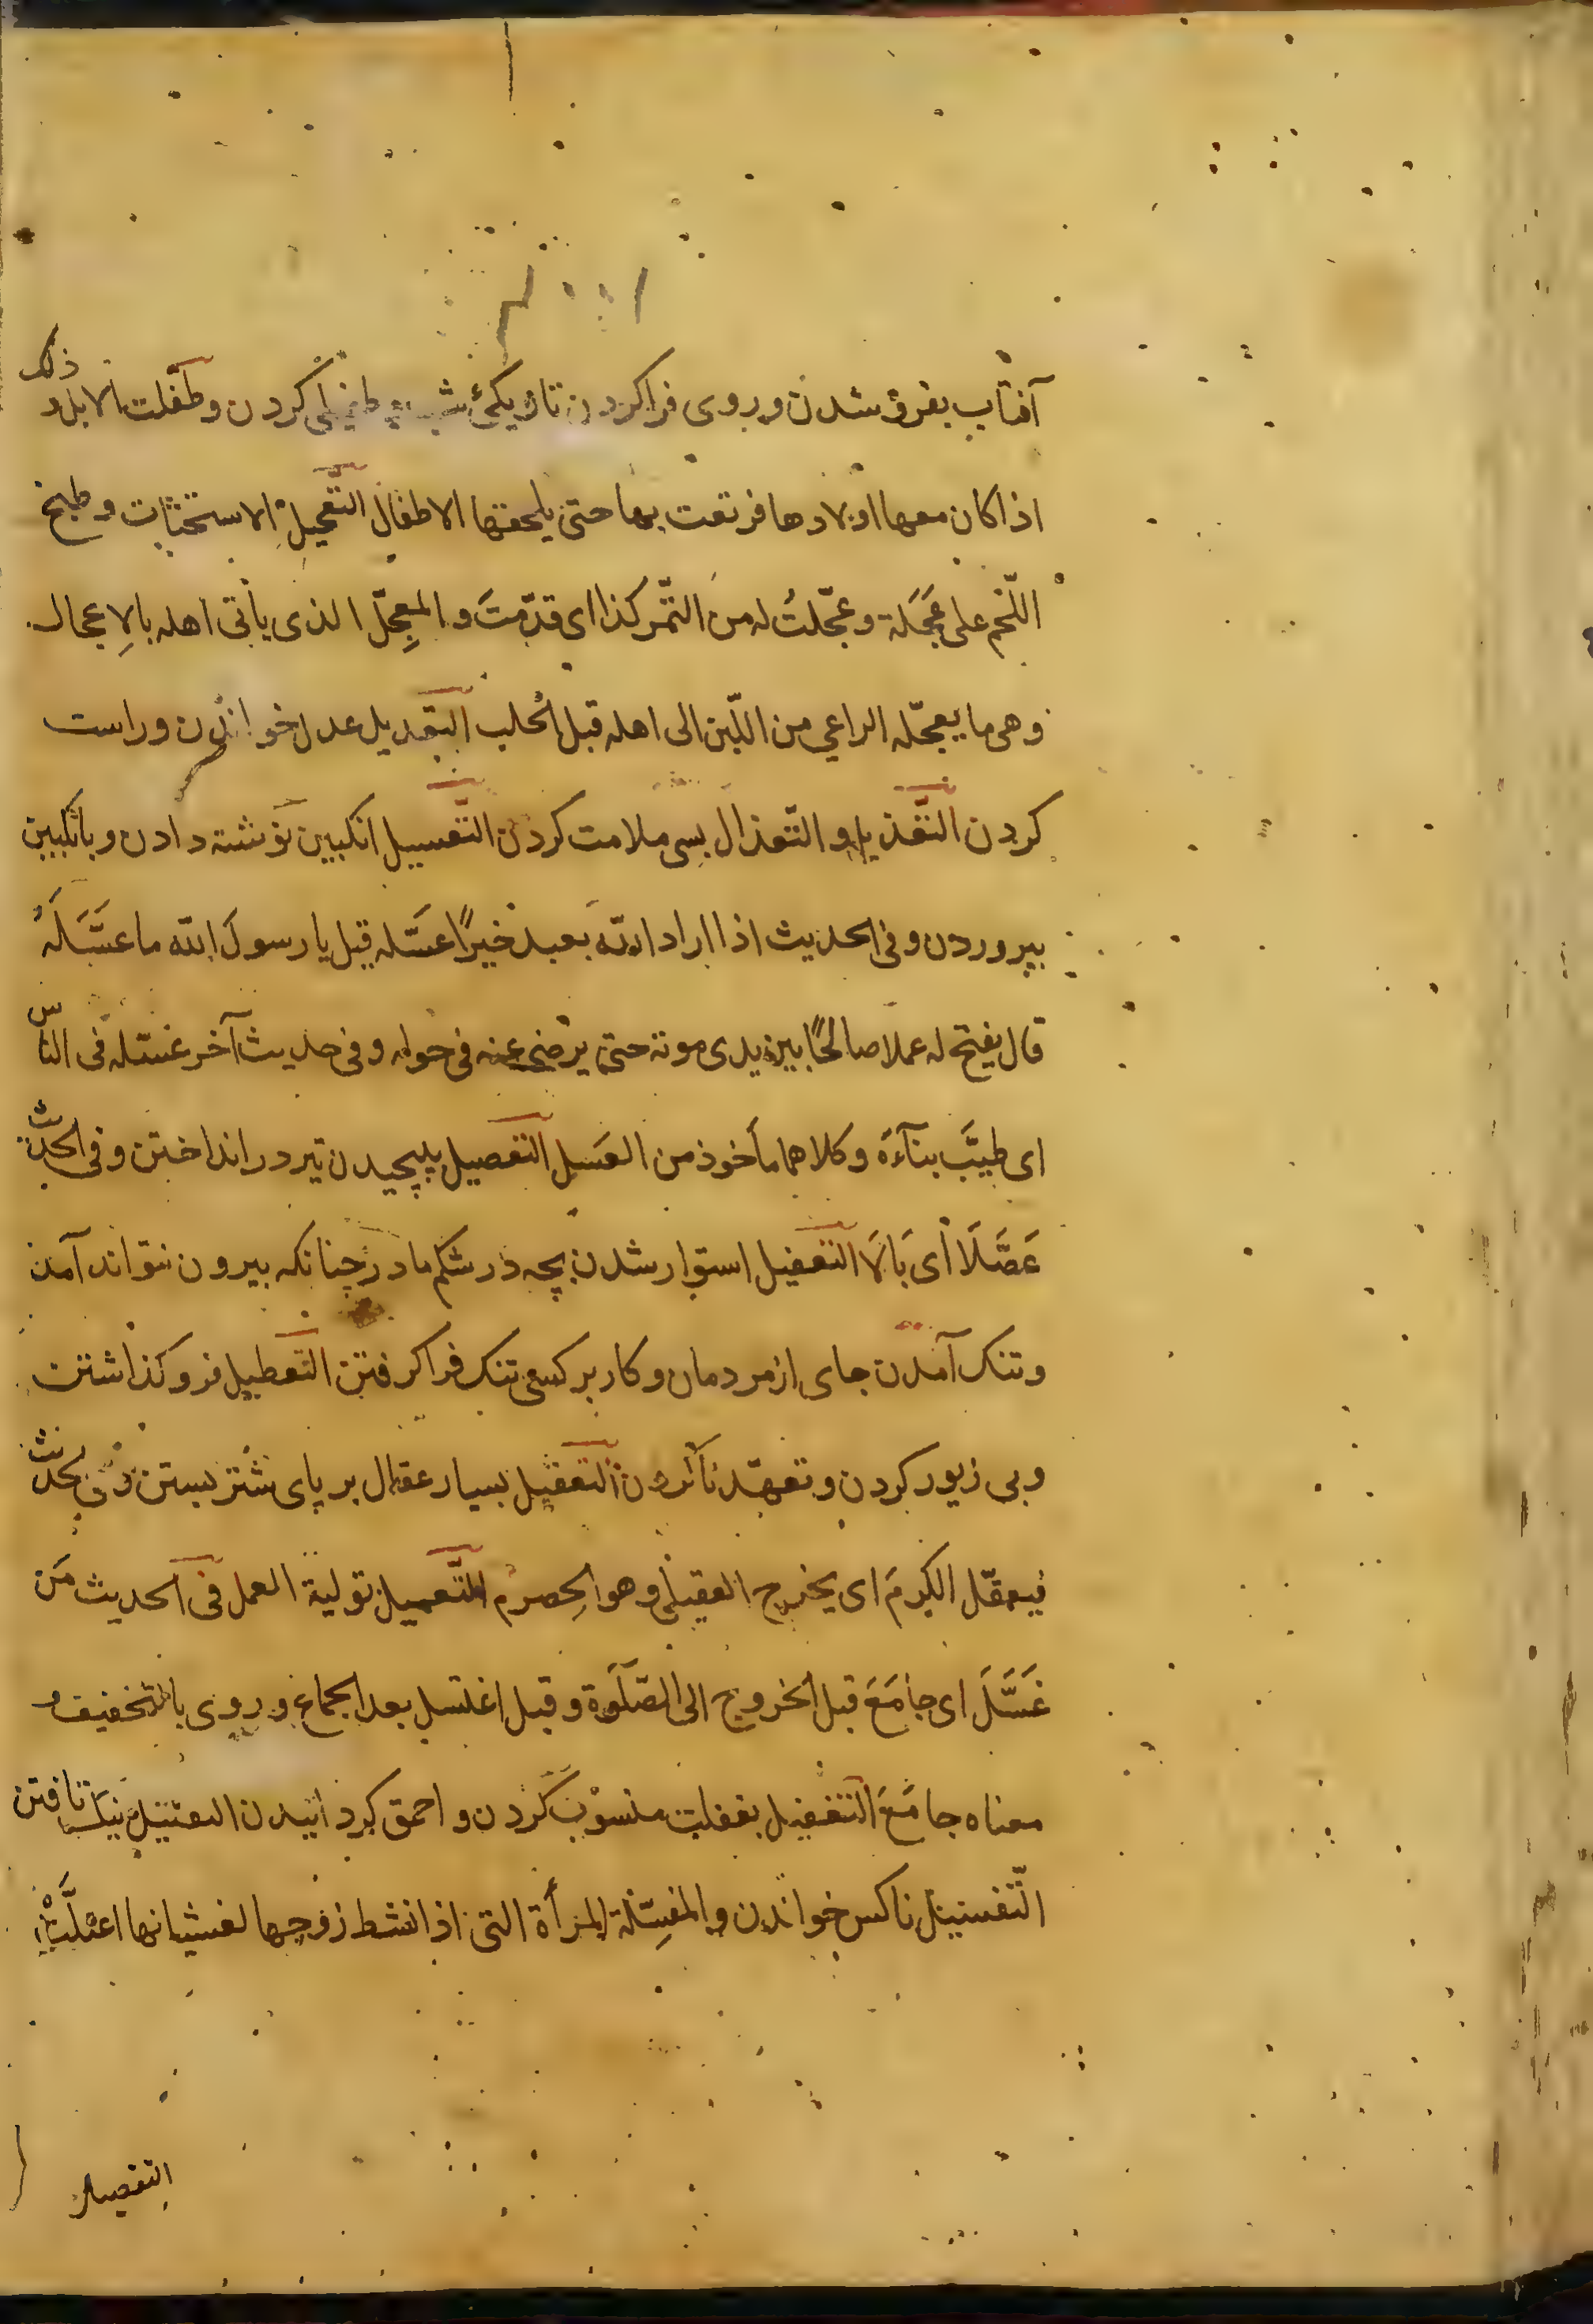 آفتاب بغرو شدن و روی فرا کردن تاریکئ شب و طفیلی کردن و طفّلت الابل و ذلک
اذا کان معها اولادها فرتعت بها حتی یلحقها الاطفال التّعجیل الاستحثاث و طبخ
اللّحم علی عَجَلة و عجّلتُ له من الثّمر کذا ای قدّمتَ و المعجِّل الذی یأتی اهله بالاِعجال
و هی ما یعجّله الراعی من اللّبن الی اهله قبل الحلب التعدیل عدل خواندن و راست
کردن التّعذیل و التّعذال بسی ملامت کردن التّعسیل انکبین توشته دادن و بانکبین
بپروردن و فی الحدیث اذا اراد الله بعبد خیرًا عسّله قیل یا رسول الله ما عسَّلَهُ
قال یفتح له عملا صالحًا بین یدی موته حتی یرضی عنه فی حوله و فی حدیث آخر عسّله فی الناس
ای طیَّب بنآءَه و کلاهما مأخوذ من العَسَل التعصیل پیچیدن تیر در انداختن و فی الحدیث
عَصَّلَا ای بَالَا التعضیل استوار شدن بچه در شکم مادر چنانکه بیرون نتواند آمدن
و تنک آمدن جای از مردمان و کار بر کسی تنک فرا کرفتن التّعطیل فرو کذاشتن
و بی زیور کردن و تعهّد ناکردن التعقیل بسیار عقال بر پای شتر بستن و فی الحدیث
فیعقّل الکرمَ ای یخرج العقیلی و هو الحِصرم التّعمیل تولیة العمل فی الحدیث مَن
غَسَّلَ ای جامَعَ قبل الخروج الی الصّلوة و قیل اغتسل بعد الجماع و روی بالتخفیف و
معناه جامَعَ التغفیل بغفلت منسوب کردن و احمق کردانیدن التفتیل نیک تافتن
التّفسیل ناکس خواندن و المفسِّلة المرأة التی اذا نشط زوجها لغشیانها اعتلّت
التفصیل